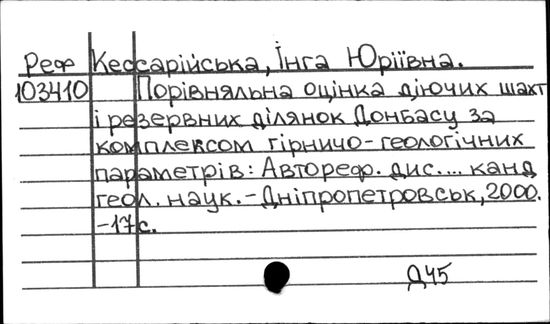 Реф Кессарійська, Інга Юріївна.
103410 Порівняльна оцінка діючих шахт
і резервних ділянок Донбасу за
комплексом гірничо-геологічних
параметрів: Автореф. дис.... канд
геол. наук. - Дніпропетровськ, 2000.
-17с.
Д45